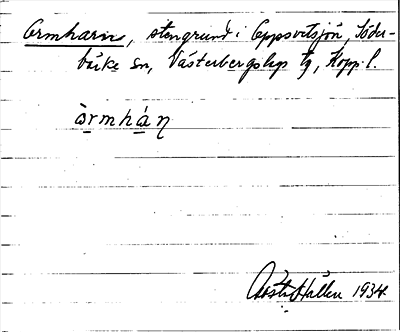 Armharn, stengrund i Oppsvetsjön, Söder-
bärke sn, Västerbergslags tg, Kopp. l.
àrmhán
Gösta Hallén 1934.